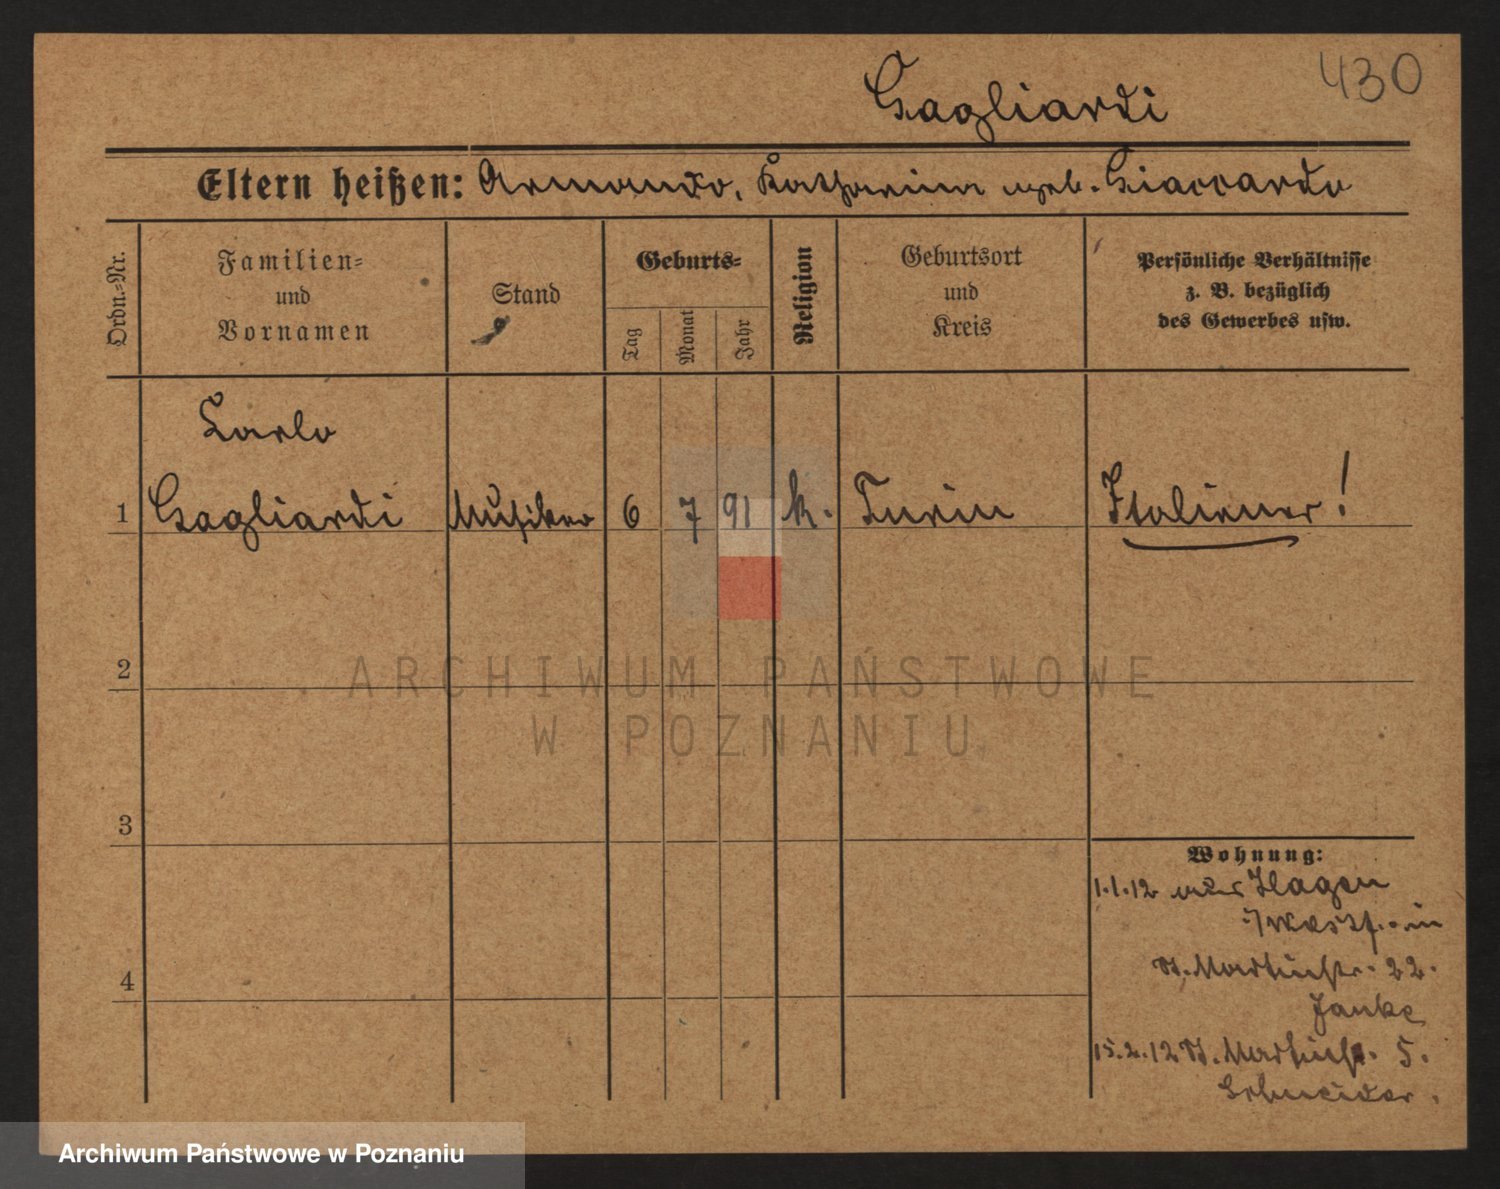 430
Gagliardi
Eltern heißen: Armando, Katharina geb. Giaccardo
Ordn.-Nr.
Familien-
und
Vornamen
Stand
Geburts-
Tag
Monat
Jahr
Religion
Geburtsort
und
Kreis
Persönliche Verhältnisse
z. B. bezüglich
des Gewerbes usw.
Carlo
1 Gagliardi Musiker 6 7 91 k. Turin Italiener!
2
ARCHIWUM PAŃSTWOWE
W POZNANIU
3
Wohnung:
1.1.12 aus Hagen
i/Westf. in
4
St. Martinstr. 22.
Janke
15.2.12 St. Martinstr. 5.
Schneider.
Archiwum Państwowe w Poznaniu